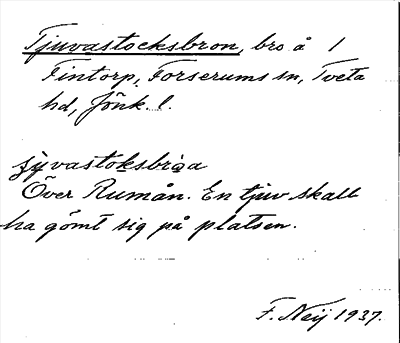 Tjuvastocksbron, bro å 1
Fintorp, Forserums sn, Tveta
hd, Jönk. l.
ʃy̆vastoksbrọa
Över Rumån. En tjuv skall
ha gömt sig på platsen.
F. Neij 1937.